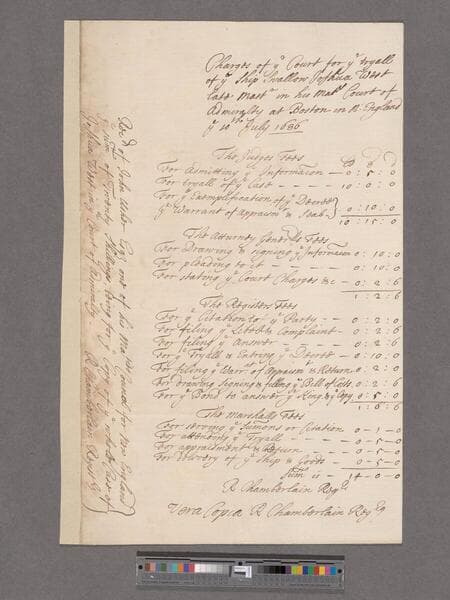 Charges of yᵉ Court for yᵉ tryall
of yᵉ Ship Swallow Joshua West
late Mastʳ in his Maᵗˢ Court of
Admiralty at Boston in N: England
yᵉ 10ᵗʰ July 1686
The Judges Fees
For Admitting yᵉ Information — 0:5:0
For tryall of yᵉ Case - - - - 10:0:0
For yᵉ Exemplification of yᵉ Decree
yᵉ Warrant of Appraismᵗ & Seale } 0:10:0
10:15:0
The Attorney Generalls Fees
For Drawing & signing yᵉ Information 0:10:0
For pleading to it - - - - 0:10:0
For stating yᵉ Court Charges &c - 0:2:6
1:2:6
The Registers Fees
For yᵉ Citation to yᵉ Party - - 0:2:0
For filing yᵉ Libell & Complaint - 0:2:6
For filing yᵉ Answer - - - 0:2:6
For yᵉ Tryall & Entring yᵉ Decree - 0:10:0
For filing yᵉ Warrᵗ of Appraismᵗ & Return 0:2:0
For drawing signing & filing yᵉ Bill of Costs 0:2:6
For yᵉ Bond to answer yᵉ King & yᵉ Copy 0:5:0
1:6:6
The Marshalls Fees
For serving yᵉ Sumons or Citation 0-1-0
For attending yᵉ Tryall - - - 0-5-0
For appraisment & Return - 0-5-0
For delivery of yᵉ Ship & Goods - 0-5-0
Sum is - 14-0-0
R Chamberlain Regʳ
Vera Copia R Chamberlain Reg
Recᵈ of John Usher Esqʳ one of his Maᵗⁱᵉˢ Council for New England
yᵉ sum of Twenty shillings being for yᵉ Copy of yᵉ whole Case of
Joshua West in yᵉ Court of Admiralty R Chamberlain Regʳ